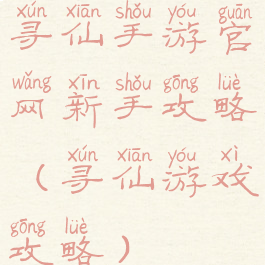 xún xiān shǒu yóu guān
寻仙手游官
wǎng xīn shǒu gōng lüè
网新手攻略
xún xiān yóu xì
（寻仙游戏
gōng lüè
攻略）